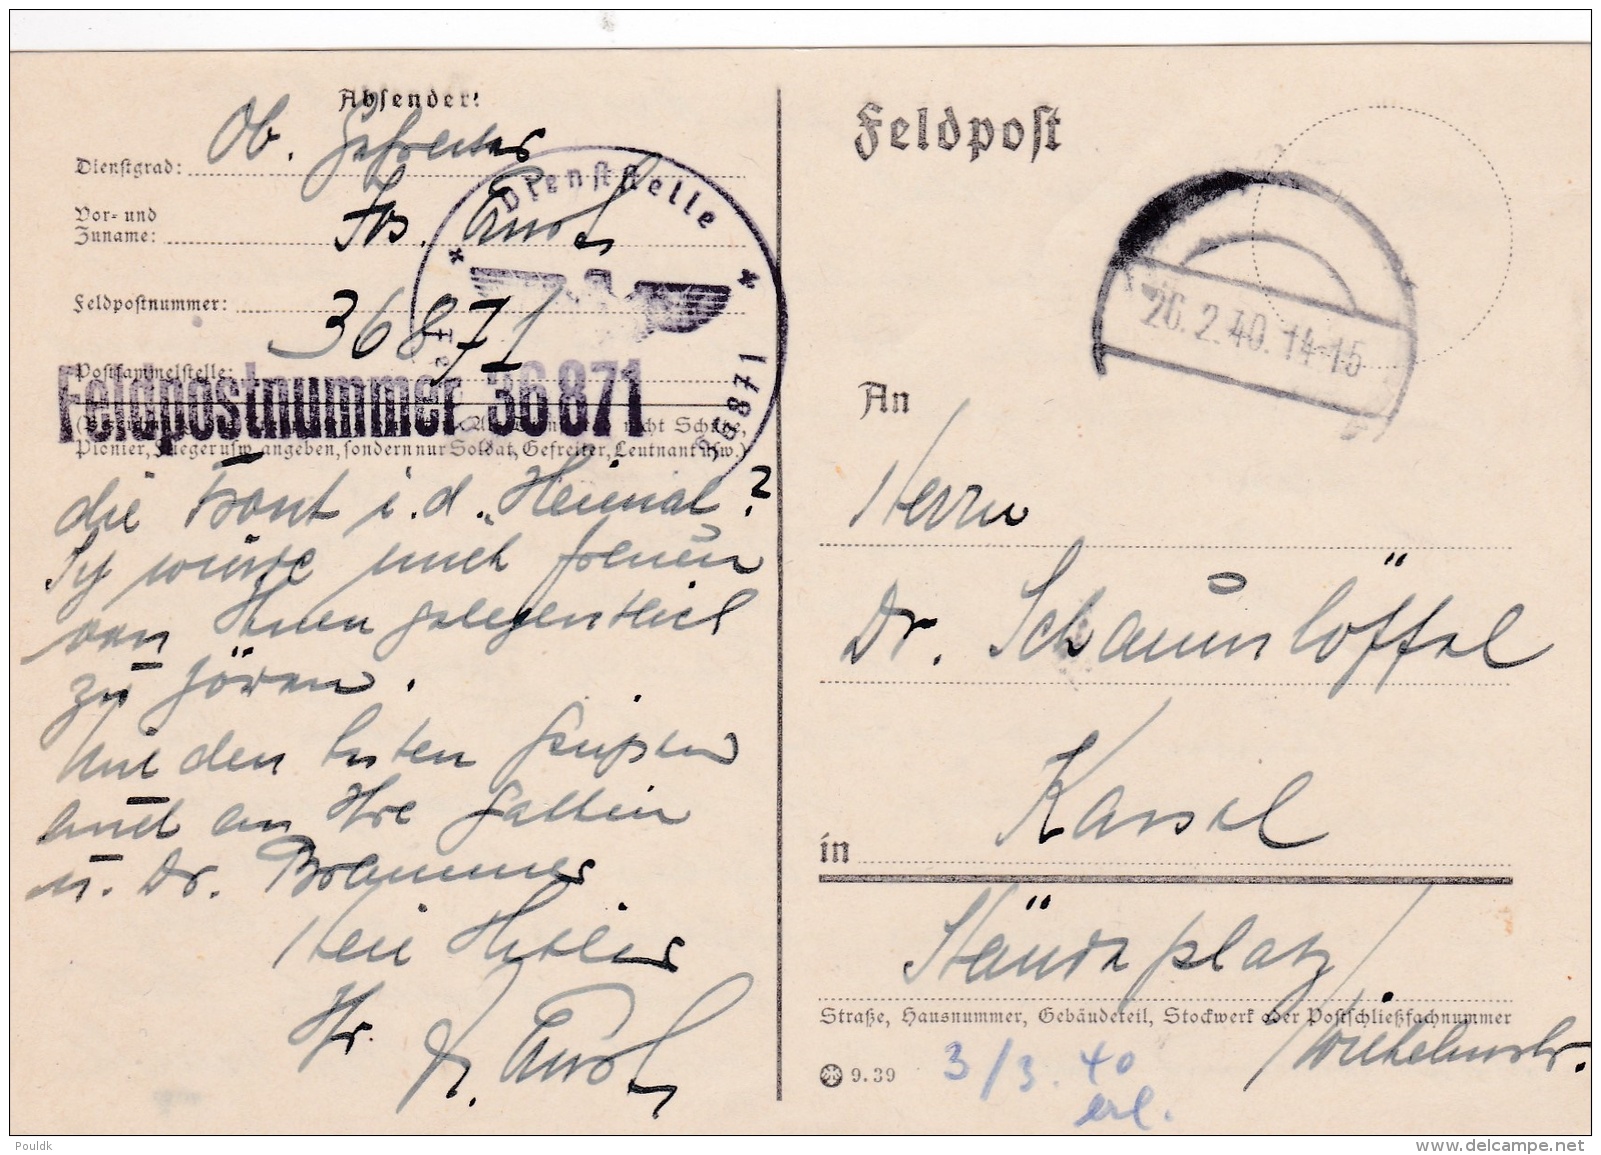 Absender:
Dienstgrad: Ob. Gefreiter
Vor- und
Zuname: Jos.
Feldpostnummer: 36871
Postsammelstelle:
Feldpostnummer 36871
nicht Schütze,
Pionier, Flieger usw. angeben, sondern nur Soldat, Gefreiter, Leutnant usw.)
Dienststelle
36871
die Front i. d. „Heimat?
Ich würde mich freuen
von Ihnen gelegentlich
zu hören.
Mit den besten Grüßen
auch an Ihre Gattin
u. Dr. Brammer
Heil Hitler
Ihr
Feldpost
26.2.40.14-15
An
Herrn
Dr. Schaumlöffel
in Kassel
Ständeplatz/
Straße, Hausnummer, Gebäudeteil, Stockwerk oder Postschließfachnummer
/Wilhelmstr.
9.39
3/3. 40
erl.
Pouldk
www.delcampe.net